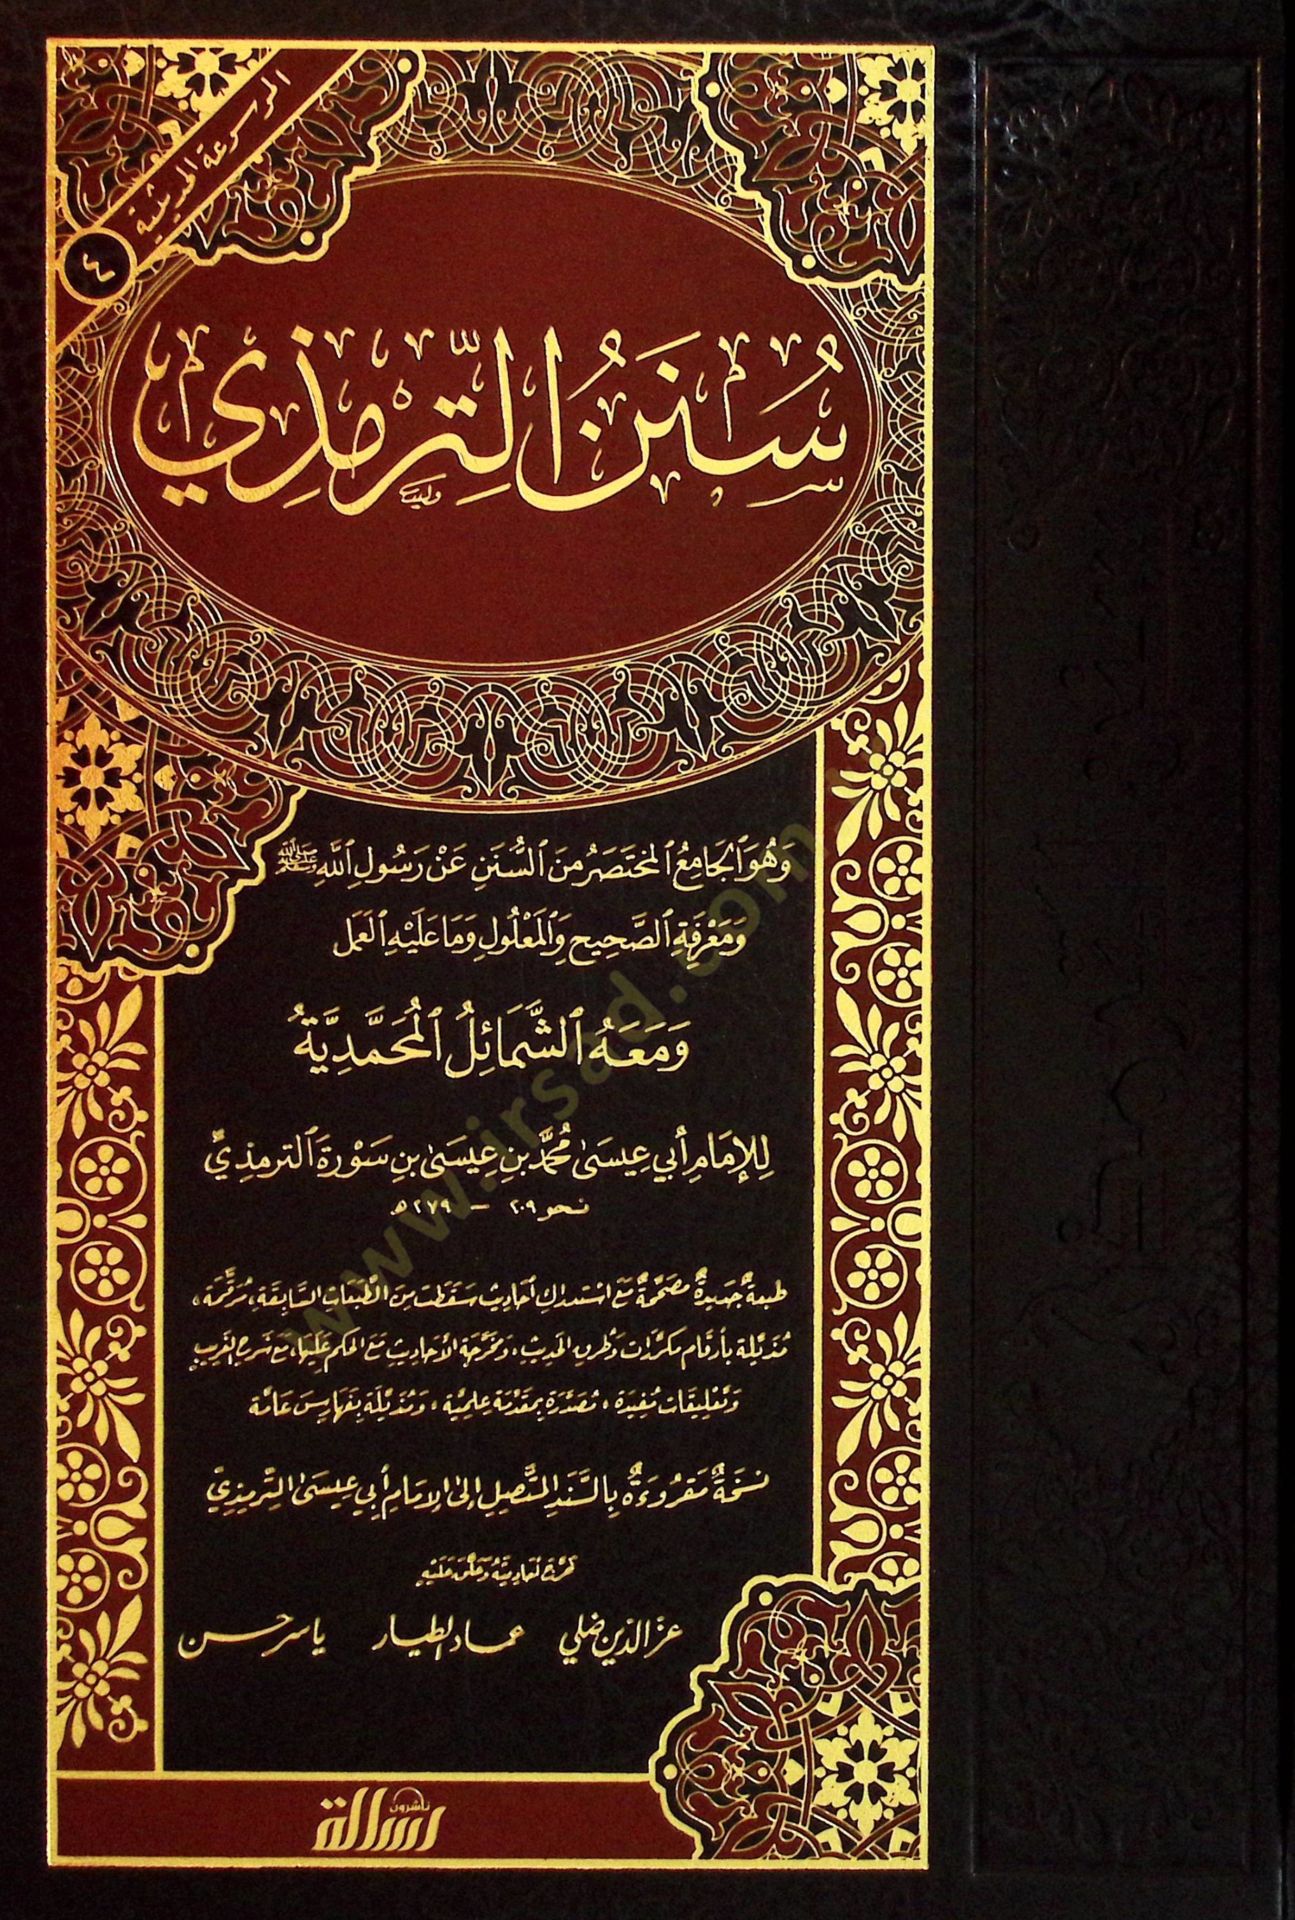 الموسوعة الحديثية
٤
سُنَنُ التِّرمِذِي
وَهُوَ الجَامِعُ المُختَصَرُ مِنَ السُّنَنِ عَنْ رَسُولِ اللَّهِ ﷺ
وَمَعْرِفَةِ الصَّحِيحِ وَالمَعْلُولِ وَمَا عَلَيْهِ العَمَلُ
وَمَعَهُ الشَّمَائِلُ المُحَمَّدِيَّةُ
لِلإمَامِ أَبي عِيسَىٰ مُحَمَّد بنِ عِيسَىٰ بنِ سَوْرَةَ الترمذيِّ
نحو ٢٠٩ - ٢٧٩ هـ
طبعةٌ جَديدةٌ مصَحَّحةٌ مَعَ استدراكِ أحَاديث سَقَطَت مِنَ الطَّبعَاتِ السَّابِقَةِ، مُرقَّمَة،
مُذيَّلة بأرقَام مكرَّرات وَطُرقِ الحَديث، ومُخرَّجة الأحَاديث مَعَ الحُكم عَلَيهَا، مَعَ شَرح الغَريب
وَتَعليقَات مُفيدَة، مُصَدَّرَة بمقدِّمَة عِلميَّة، وَمُذيَّلَة بفَهَارِسَ عَامَّة
نسْخَةٌ مَقروءَةٌ بِالسَّنَدِ المتَّصِلِ إلىٰ الإمَامِ أَبِي عِيسَىٰ التِّرمِذِيِّ
خَرَّجَ أحَاديثَهُ وَعَلَّقَ عَلَيْهِ
عزّالدّين ضلي عماد الطيار ياسر حسن
رسالة ناشرون
www.irsad.com